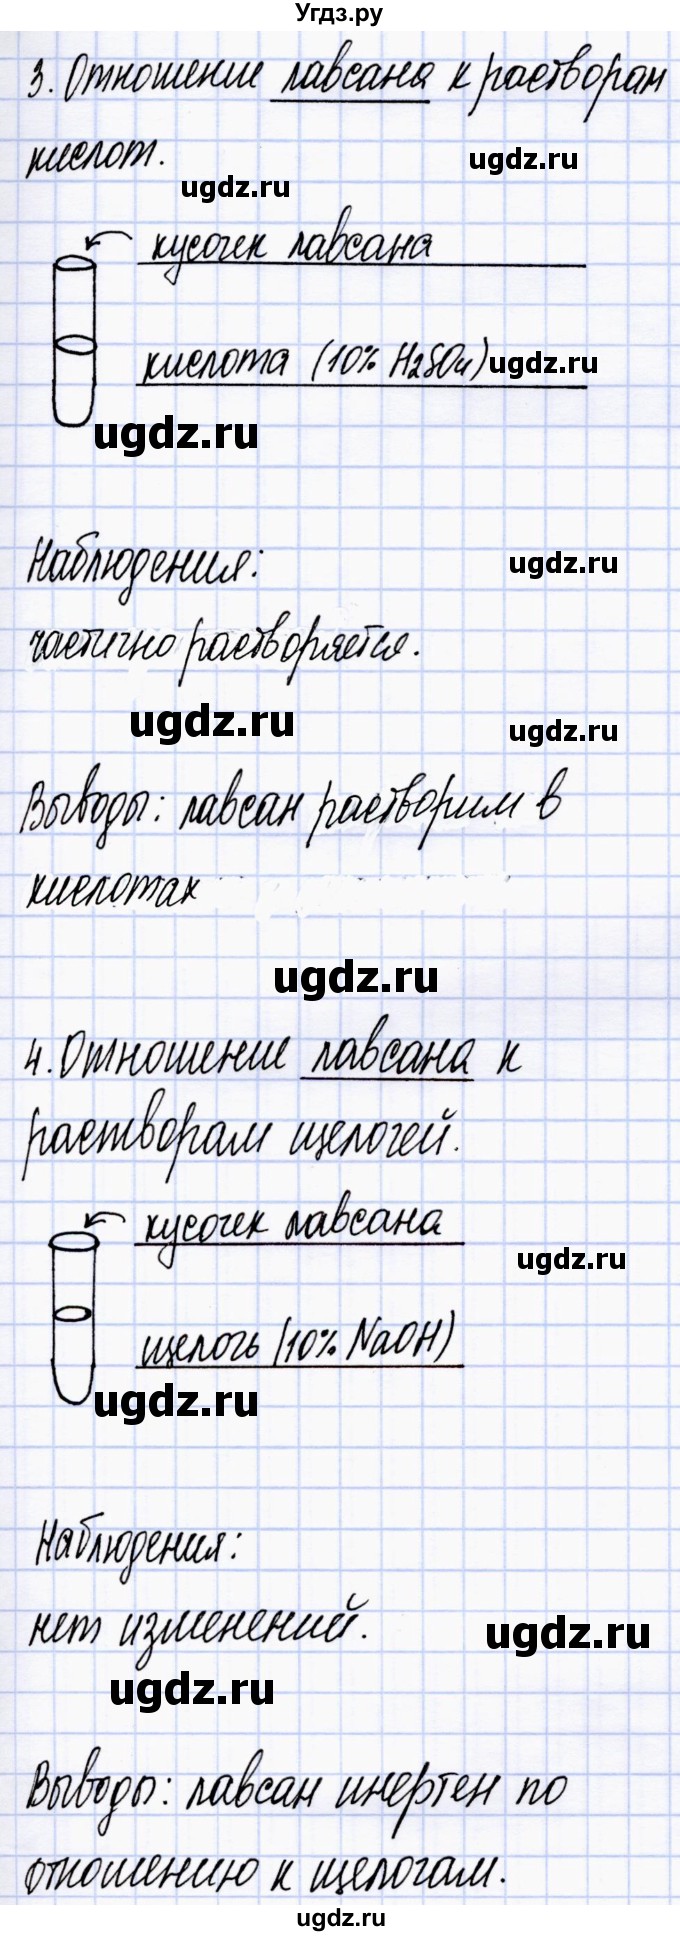 Угдз.ру
3. Отношение лавсана к растворам
кислот.
ugdz.ru
ugdz.ru
кусочек лавсана
кислота (10% H2SO4)
ugdz.ru
ugdz.ru
Наблюдения:
ugdz.ru
частично растворяется.
ugdz.ru
ugdz.ru
Выводы: лавсан растворим в
кислотах
ugdz.ru
4. Отношение лавсана к
растворам щелочей.
кусочек лавсана
ugdz.ru
щелочь (10% NaOH)
ugdz.ru
Наблюдения:
нет изменений.
ugdz.ru
ugdz.ru
Выводы: лавсан инертен по
отношению к щелочам.
ugdz.ru